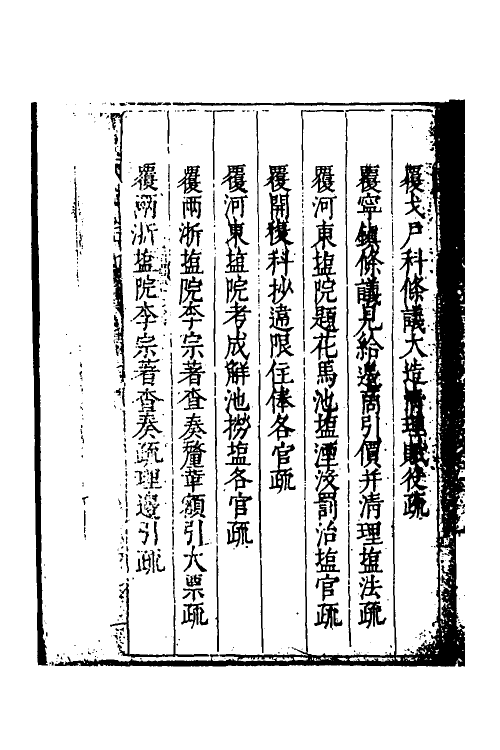 覆戈戶科條議大造清理賦役疏
覆寧鎮條議見給邊商引價并清理塩法疏
覆河東塩院題花馬池塩湮沒罰治塩官疏
覆開復科抄違限住俸各官疏
覆河東塩院考成解池撈塩各官疏
覆兩浙塩院李宗著查奏釐革額引大票疏
覆兩浙塩院李宗著查奏疏理邊引疏